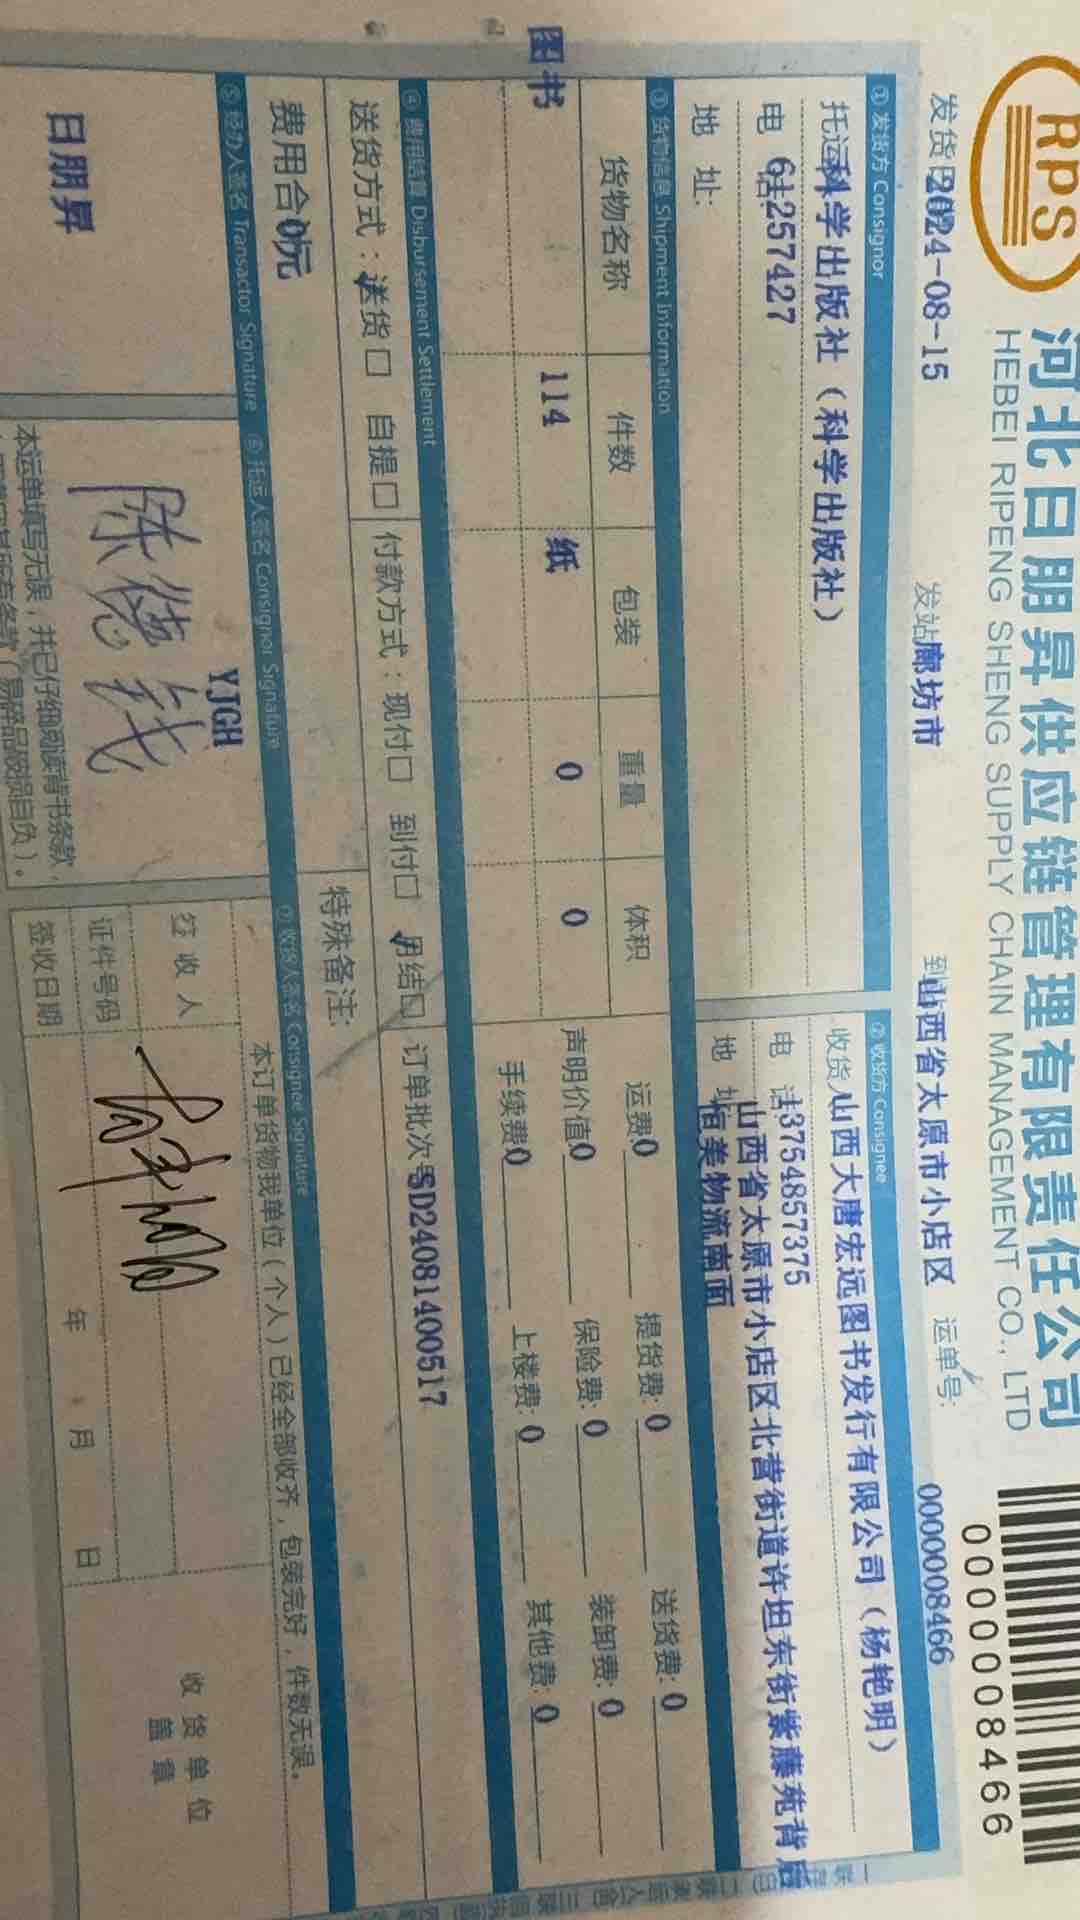 RPS
河北日朋昇供应链管理有限责任公司
HEBEI RIPENG SHENG SUPPLY CHAIN MANAGEMENT CO., LTD
0000008466
发货日 2024-08-15 发站 廊坊市 到 山西省太原市小店区 运单号: 0000008466
① 发货方 Consignor
托运 科学出版社（科学出版社）
电话 61257427
地 址:
② 收货方 Consignee
收货人 山西大唐宏远图书发行有限公司（杨艳明）
电 话 3754857375
地 址 山西省太原市小店区北营街道许坦东街紫藤苑背后
佰美物流南面
③ 货物信息 Shipment Information
货物名称 件数 包装 重量 体积
图书 114 纸 0 0
运费 0 提货费: 0 送货费: 0
声明价值 0 保险费: 0 装卸费: 0
手续费 0 上楼费: 0 其他费: 0
④ 费用结算 Disbursement Settlement
送货方式：送货□ 自提□ 付款方式：现付□ 到付□ 月结□ 订单批次号 SD24081400517
费用合 0元
特殊备注:
⑤ 经办人签名 Transactor Signature ⑥ 托运人签名 Consignor Signature ⑦ 收货人签名 Consignee Signature
日朋昇
YJGH
本运单填写无误，并已仔细阅读背书条款，
本订单货物我单位（个人）已经全部收齐，包装完好，件数无误。
签 收 人
证件号码
签收日期 年 月 日
收 货 单 位
盖 章